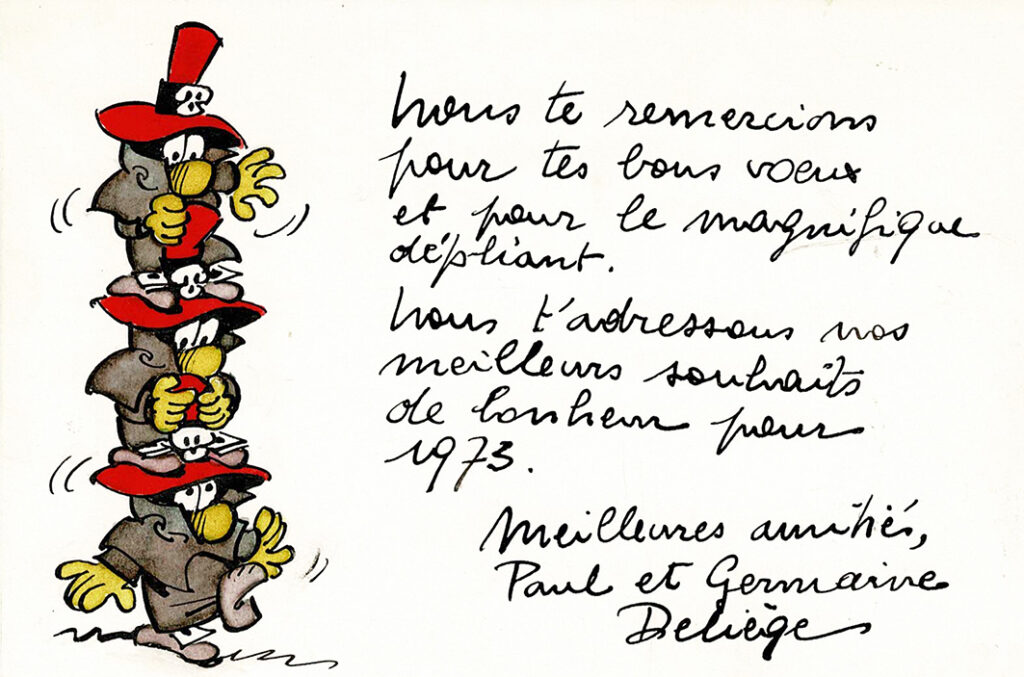 Nous te remercions
pour tes bons voeux
et pour le magnifique
dépliant.
Nous t'adressons nos
meilleurs souhaits
de bonheur pour
1973.
Meilleures amitiés,
Paul et Germaine
Deliège